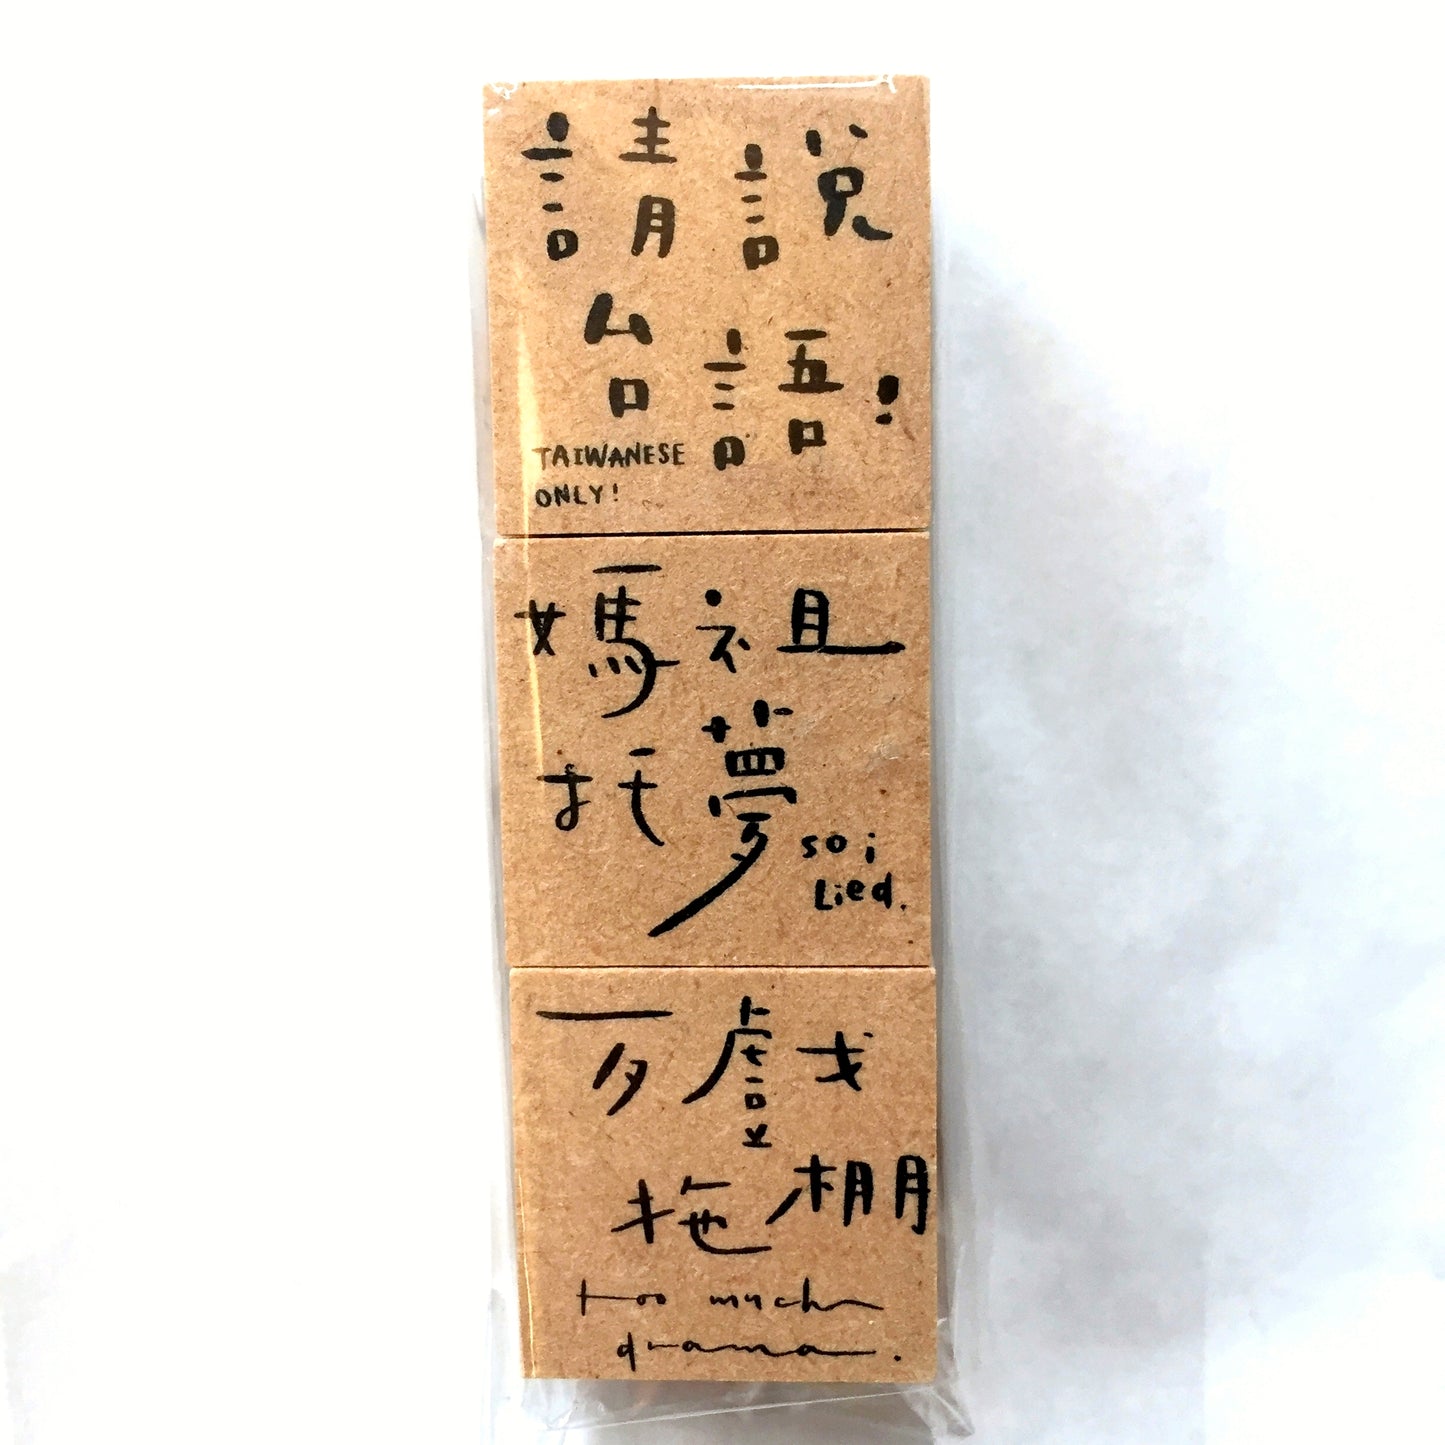 請說
台語!
TAIWANESE
ONLY!
媽祖
托夢
so i
Lied.
歹戲
拖棚
too much
drama.